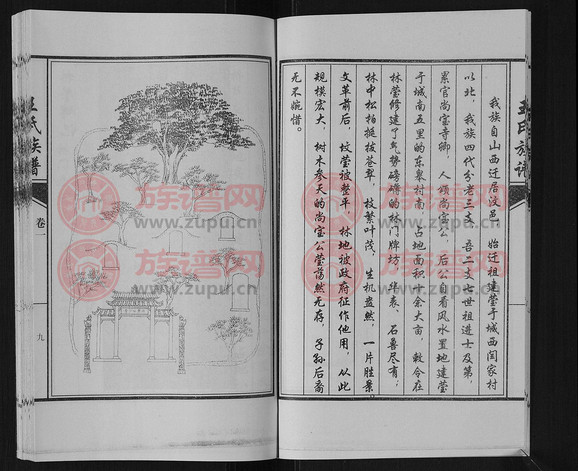 王氏族谱
我族自山西迁居汶邑，始迁祖建茔于城西闫家村
以北，我族四代分老三支，吾二支七世祖进士及第，
累官尚宝寺卿，人领尚宝公，后公自看风水置地建茔
于城南五里的东泉村南，占地面积十余大亩，敕令在
林茔修建了气势磅礴的林门牌坊，华表、石兽尽有；
林中松柏挺拔苍翠，枝繁叶茂，生机盎然，一片胜景。
文革前后，坟茔被整平，林地被政府征作他用，从此
规模宏大，树木参天的尚宝公茔荡然无存，子孙后裔
无不婉惜。
王氏族谱
卷一
九
族谱网
www.zupu.cn
族谱网
www.zupu.cn
族谱网
www.zupu.cn
族谱网
www.zupu.cn